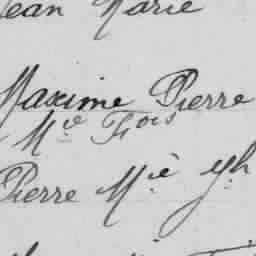 Jean Marie
Maxime Pierre
Me Fois
Pierre Mie yh